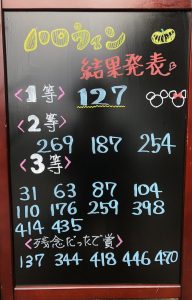 ハロウィン
結果発表
<1等>
127
<2等>
269 187 254
<3等>
31 63 87 104
110 176 259 398
414 435
<残念だったで賞>
137 344 418 446 470